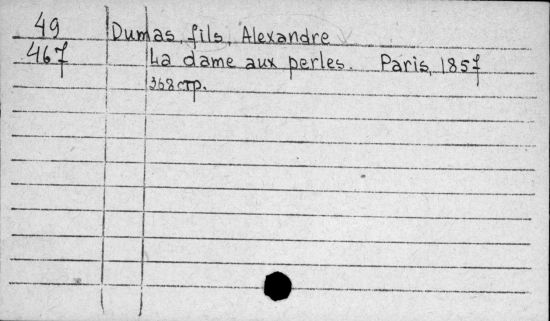 49 Dumas, fils, Alexandre
467 La dame aux perles. Paris, 1857
368 стр.